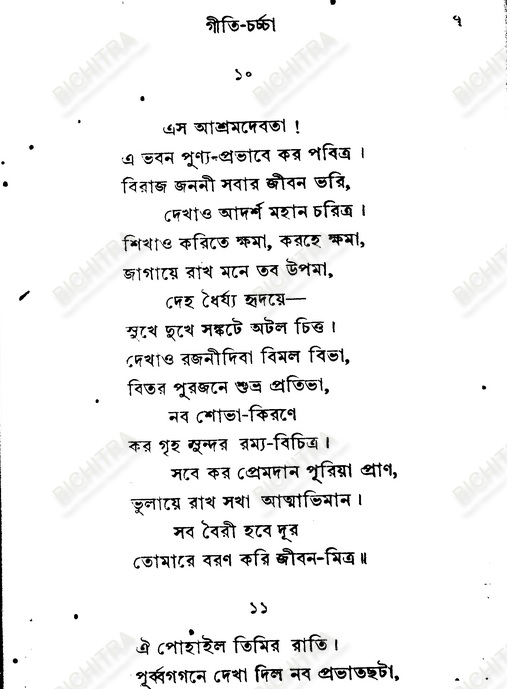 গীতি-চর্চ্চা ৭
১০
এস আশ্রমদেবতা !
এ ভবন পুণ্য-প্রভাবে কর পবিত্র ।
বিরাজ জননী সবার জীবন ভরি,
দেখাও আদর্শ মহান চরিত্র ।
শিখাও করিতে ক্ষমা, করহে ক্ষমা,
জাগায়ে রাখ মনে তব উপমা,
দেহ ধৈর্য্য হৃদয়ে—
সুখে দুখে সঙ্কটে অটল চিত্ত ।
দেখাও রজনীদিবা বিমল বিভা,
বিতর পুরজনে শুভ্র প্রতিভা,
নব শোভা-কিরণে
কর গৃহ সুন্দর রম্য-বিচিত্র ।
সবে কর প্রেমদান পূরিয়া প্রাণ,
ভুলায়ে রাখ সখা আত্মাভিমান ।
সব বৈরী হবে দূর
তোমারে বরণ করি জীবন-মিত্র ॥
১১
ঐ পোহাইল তিমির রাতি ।
পূর্ব্বগগনে দেখা দিল নব প্রভাতছটা,
BICHITRA
BICHITRA
BICHITRA
BICHITRA
BICHITRA
BICHITRA
BICHITRA
BICHITRA
BICHITRA
BICHITRA
BICHITRA